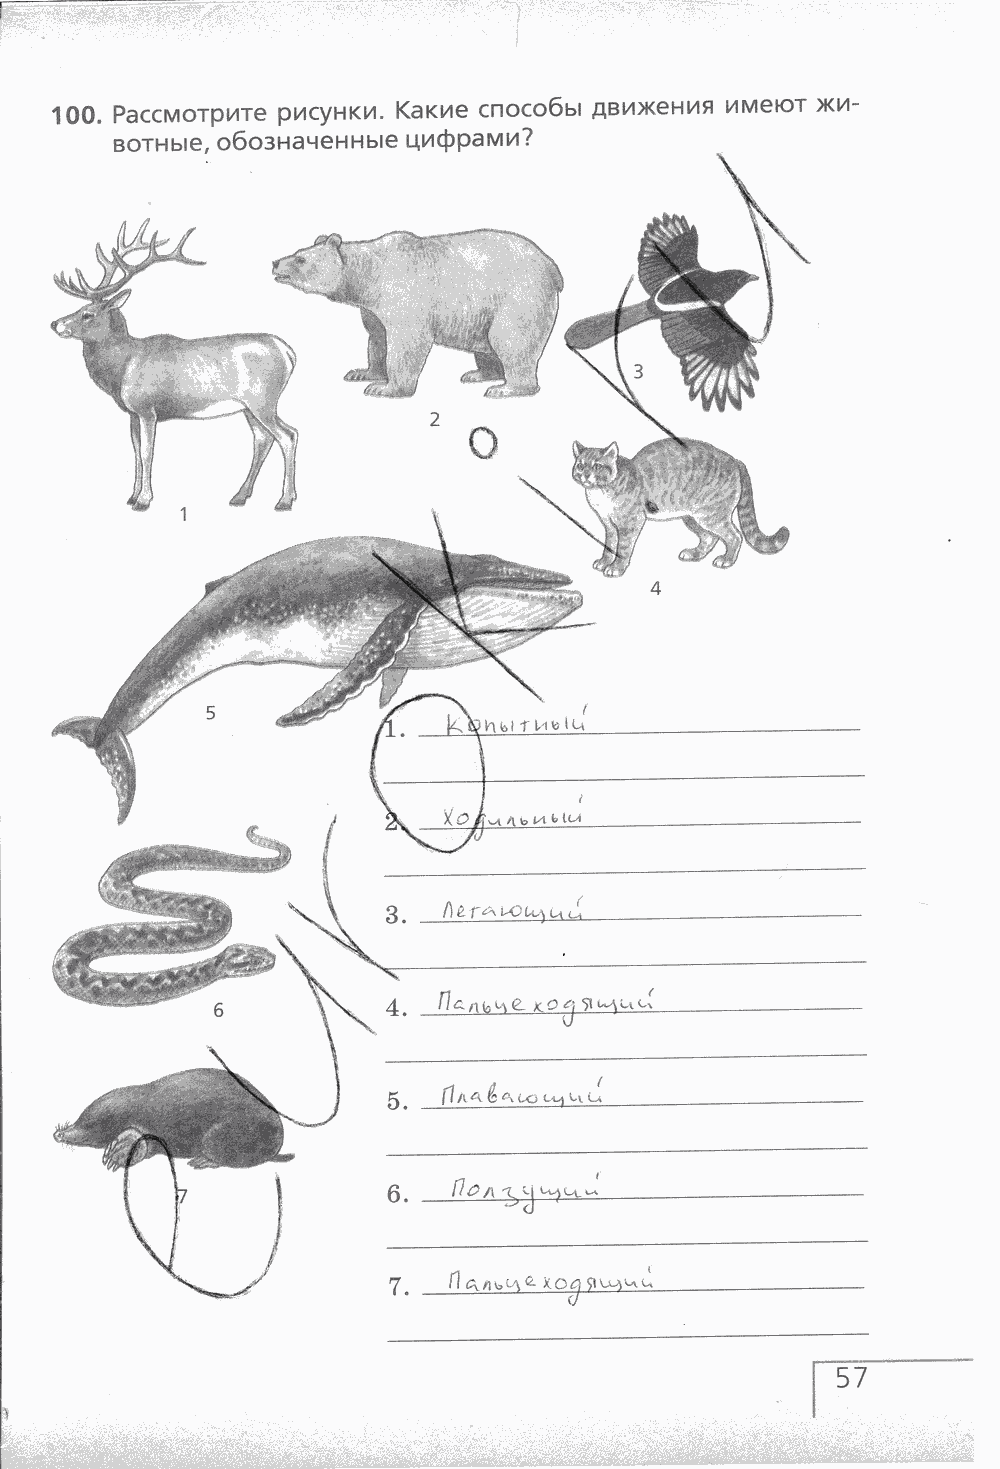 100. Рассмотрите рисунки. Какие способы движения имеют жи-
вотные, обозначенные цифрами?
1
2
3
4
5
6
7
1. Копытный
2. Ходильный
3. Летающий
4. Пальцеходящий
5. Плавающий
6. Ползущий
7. Пальцеходящий
57